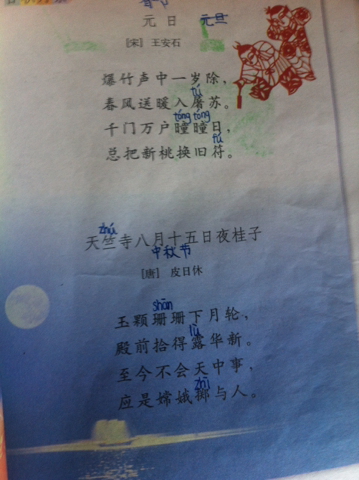 元日 元旦
[宋] 王安石
爆竹声中一岁除，
tú
春风送暖入屠苏。
tóng tóng
千门万户曈曈日，
fú
总把新桃换旧符。
zhú
天竺寺八月十五日夜桂子
中秋节
[唐] 皮日休
shān
玉颗珊珊下月轮，
lù
殿前拾得露华新。
至今不会天中事，
zhì
应是嫦娥掷与人。